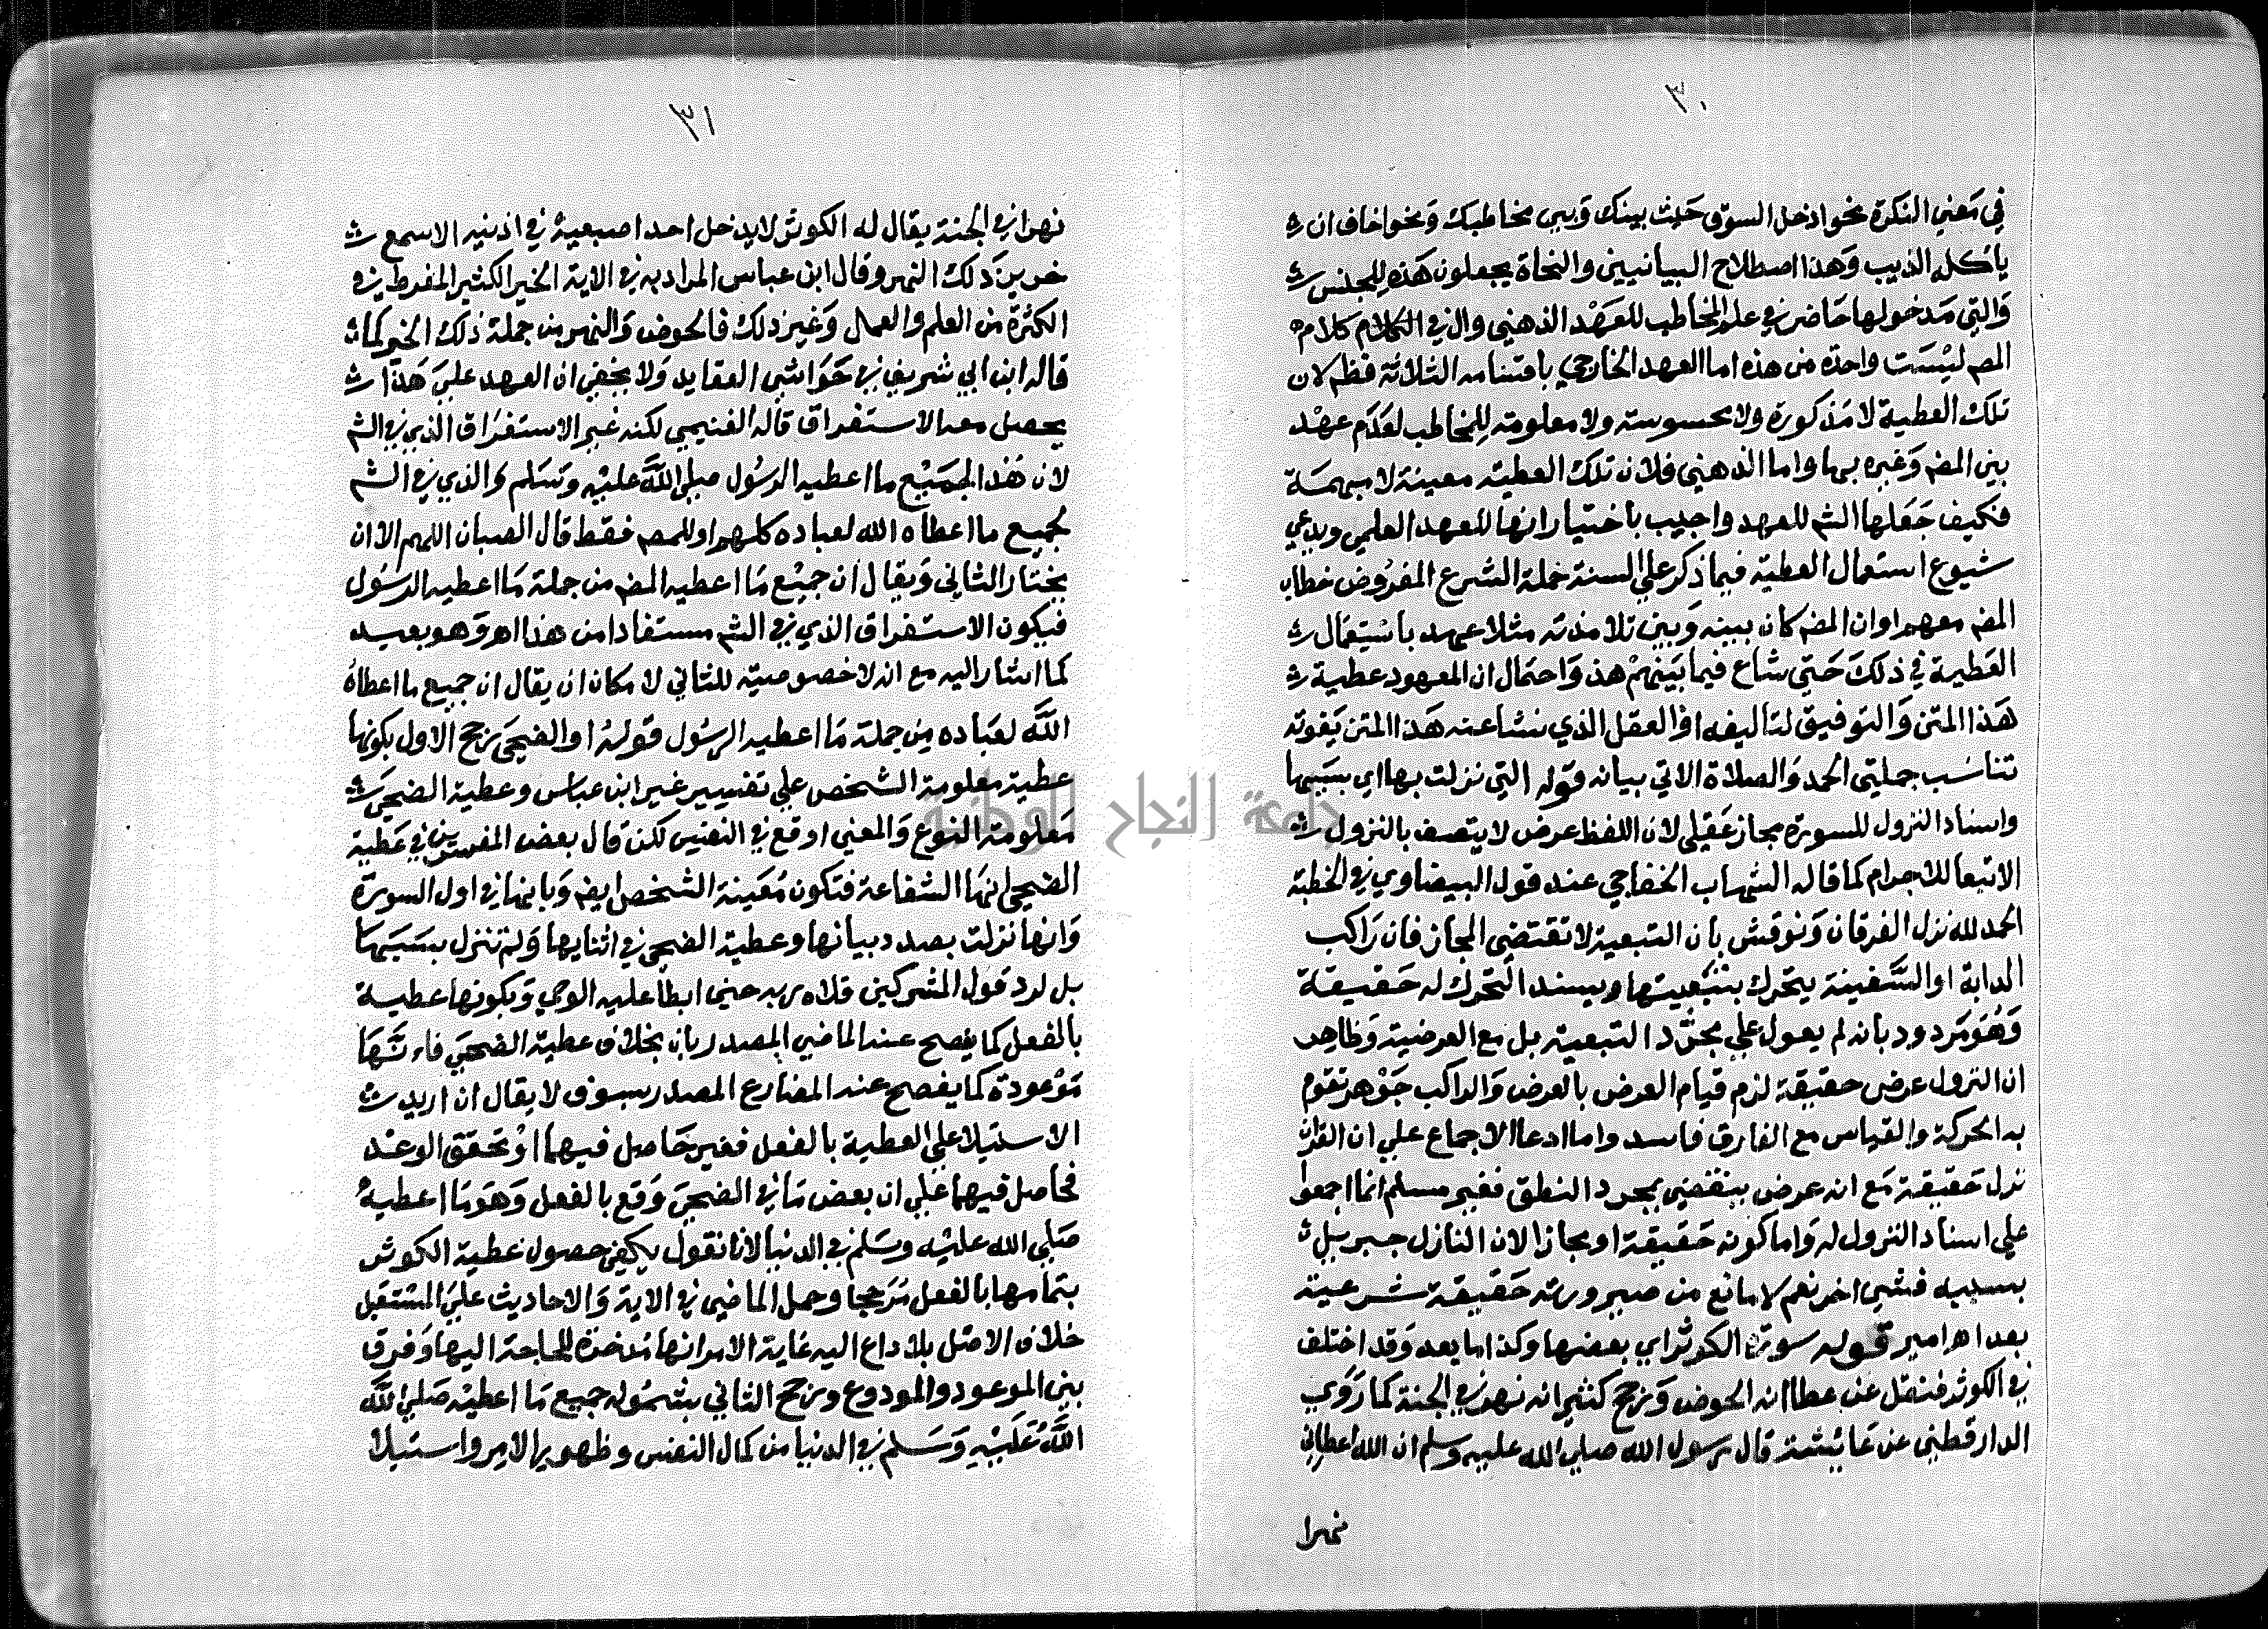 ٣٠
في معني النكرة نحو ادخل السوق حيث بينك وبين مخاطبك ونحو اخاف ان
ياكله الذيب وهذا اصطلاح البيانيين والنحاة يجعلون هذه للجنس
والتي مدخولها حاضر في علم المخاطب للعهد الذهني وال في الكلام كلام
المص ليست واحدة من هذه اما العهد الخارجي باقسامه الثلاثة فظم لان
تلك العطية لا مذكورة ولا محسوسة ولا معلومة للمخاطب لعدم عهد
بين المض وغيره بها واما الذهني فلان تلك العطية معينة لا مبهمة
فكيف جعلها الشم للعهد واجيب باختيار انها للعهد العلمي ويدعي
شيوع استعمال العطية فيما ذكر علي السنة حملة الشرع المفروض خطاب
المض معهم اوان المض كان بينه وبين تلامذته مثلا عهد باستعمال
العطية في ذلك حتي شاع فيما بينهم هذه واحتمال ان المعهود عطية
هذا المتن والتوفيق لتاليفه او العقل الذي نشا عنه هذا المتن يفوته
تناسب جملتي الحمد والصلاة الاتي بيانه قوله التي نزلت بها اي بسببها
واسناد النزول للسورة مجاز عقلي لان اللفظ عرض لا يتصف بالنزول
الا تبعا للاجرام كما قاله الشهاب الخفاجي عند قول البيضاوي في الخطبة
الحمد لله نزل الفرقان ونوقش بان التبعية لا تقتضي المجاز فان راكب
الدابة او السفينة يتحرك بتبعيتها ويسند التحرك له حقيقة
وهو مردود بانه لم يعول علي مجرد التبعية بل مع العرضية وظاهر
ان النزول عرض حقيقة لزم قيام العرض بالعرض والراكب جوهر تقوم
به الحركة والقياس مع الفارق فاسد واما ادعا الاجماع علي ان القران
نزل حقيقة مع انه عرض ينقضي بمجرد النطق فغير مسلم انما اجمعوا
علي اسناد النزول له واما كونه حقيقة او مجازا لان النازل جبريل
بسببه فشي اخر نعم لا مانع من صيرورته حقيقة شرعية
بعد اهر امير قوله سورة الكوثر اي بعضها وكذا ما بعد وقد اختلف
في الكوثر فنقل عن عطا انه الحوض ورجح كثير انه نهر في الجنة كما روي
الدارقطني عن عائشة قال رسول الله صلي الله عليه وسلم ان الله اعطاني
نهرا
٣١
نهرا في الجنة يقال له الكوثر لا يدخل احد اصبعيه في اذنيه الا سمع
خرير ذلك النهر وقال ابن عباس المراد به في الاية الخير الكثير المفرط في
الكثرة من العلم والعمل وغير ذلك فالحوض والنهر من جملة ذلك الخير كما
قاله ابن ابي شريف في حواشي العقايد ولا يخفي ان العهد علي هذا
يحصل معه الاستغراق قاله الغنيمي لكنه غير الاستغراق الذي في الشم
لان هذا لجميع ما اعطيه الرسول صلي الله عليه وسلم والذي في الشم
لجميع ما اعطاه الله لعباده كلهم او للمص فقط قال الصبان اللهم الا ان
يختار الثاني ويقال ان جميع ما اعطيه المض من جملة ما اعطيه الرسول
فيكون الاستغراق الذي في الشم مستفادا من هذا اهر وهو بعيد
كما اشار اليه مع انه لا خصوصية للثاني لا مكان ان يقال ان جميع ما اعطاه
الله لعباده من جملة ما اعطيه الرسول قوله او الضحي رجح الاول بكونها
عطية معلومة الشخص علي تفسير غير ابن عباس وعطية الضحي
معلومة النوع والمعني اوقع في النفس لكن قال بعض المفسرين في عطية
الضحي انها الشفاعة فتكون معينة الشخص ايض وبانها في اول السورة
وانها نزلت بصدد بيانها وعطية الضحي في اثنايها ولم تنزل بسببها
بل لرد قول المشركين قلاه ربه حين ابطا عليه الوحي وبكونها عطية
بالفعل كما يفصح عنه الماضي المصدر بان بخلاف عطية الضحي فانها
موعودة كما يفصح عنه المضارع المصدر بسوف لا يقال ان اريد
الاستيلا علي العطية بالفعل فغير حاصل فيهما او تحقق الوعد
فحاصل فيهما علي ان بعض ما في الضحي وقع بالفعل وهو ما اعطيه
صلي الله عليه وسلم في الدنيا لانا نقول يكفي حصول عطية الكوثر
بتمامها بالفعل مرجحا وحمل الماضي في الاية والاحاديث علي المستقبل
خلاف الاصل بلا داع اليه غاية الامر انها مدخرة للحاجة اليها وفرق
بين الموعود والمودوع ورجح الثاني بشموله جميع ما اعطيه صلي الله
الله عليه وسلم في الدنيا من كمال النفس وظهور الامر واستيلا
جامعة النجاح الوطنية